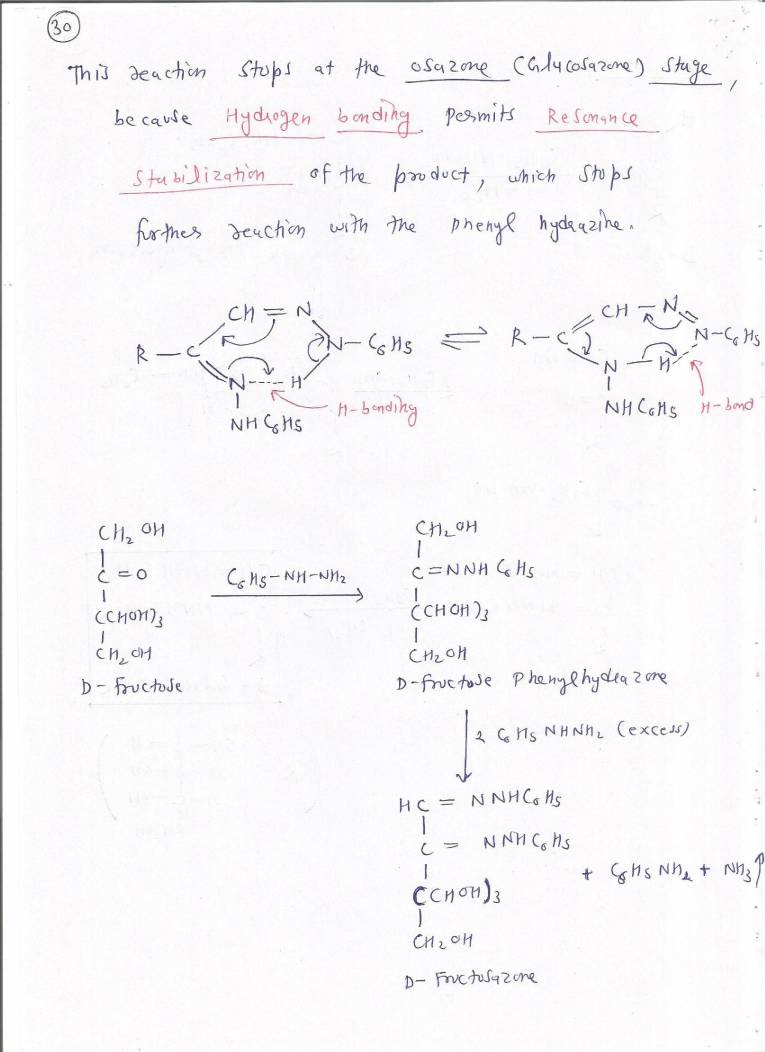 30
This reaction stops at the osazone (Glucosazone) stage,
because Hydrogen bonding permits Resonance
Stabilization of the product, which stops
further reaction with the phenyl hydrazine.
CH = N
R – C
N – C6H5
N ---- H
NHC6H5
H-bonding
⇌
CH – N
R – C
N – C6H5
N – H
NHC6H5
H-bond
CH2OH
C = O
(CHOH)3
CH2OH
D- Fructose
C6H5-NH-NH2
CH2OH
C=NNHC6H5
(CHOH)3
CH2OH
D-fructose phenylhydrazone
2 C6H5NHNH2 (excess)
HC = NNHC6H5
C = NNHC6H5
(CHOH)3
CH2OH
+ C6H5NH2 + NH3↑
D- Fructosazone